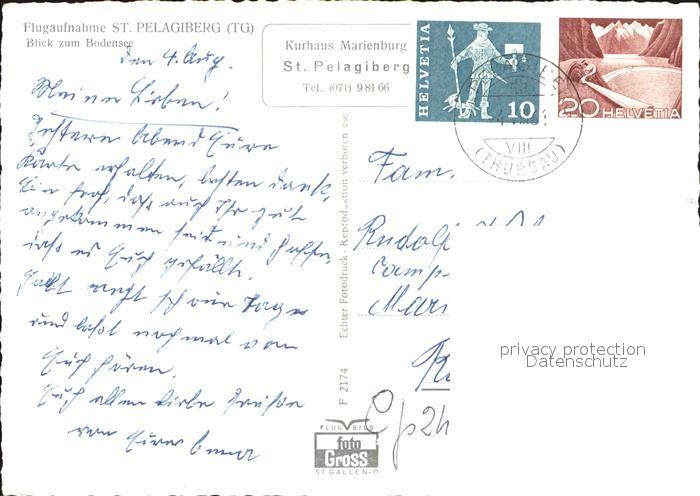 Flugaufnahme ST. PELAGIBERG (TG)
Blick zum Bodensee
Kurhaus Marienburg
St. Pelagiberg
Tel. (071) 9 81 66
HELVETIA
10
20 HELVETIA
VIII
(THURGAU)
den 4. Aug.
Meine Lieben!
Gestern Abend Eure
Karte erhalten, besten Dank,
bin froh, dass auch Ihr gut
angekommen seid und hoffe,
dass es Euch gefällt.
schöne Tage
und lasst noch mal von
Euch hören.
Euch allen liebe Grüsse
von Eurer
Fam.
Rudolf
Camp-
Mari
F 2174 Echter Fotodruck - Reproduktion verboten
FLUGBILD
foto
Gross
ST. GALLEN-O
privacy protection
Datenschutz